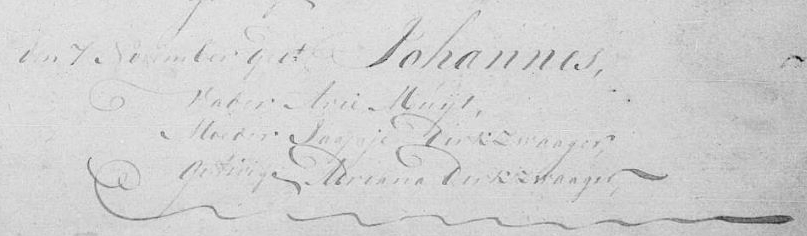 den 7 November get: Johannes,
Vader Arie Muijt,
Moeder Jaapje Dirkzwaager,
getuige Adriana Dirkzwaager,